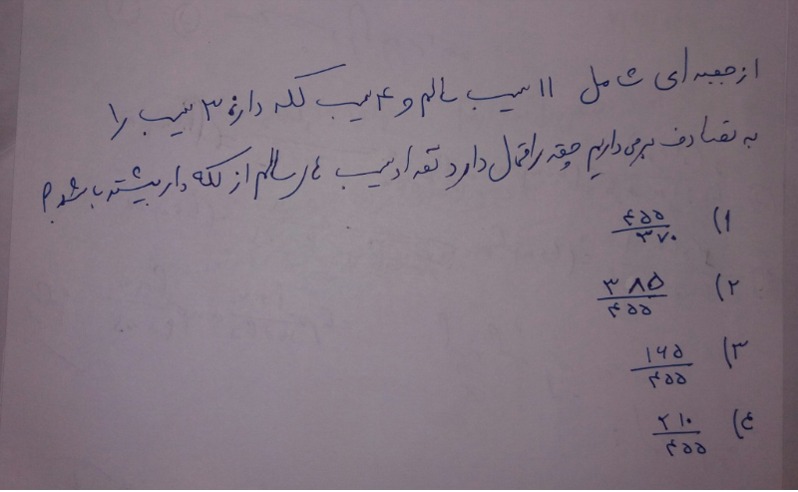 از جعبه ای شامل ۱۱ سیب سالم و ۴ سیب لکه دار، ۳ سیب را
به تصادف برمی داریم چقدر احتمال دارد تعداد سیب های سالم از لکه دار بیشتر باشد؟
۱) ۴۵۵/۳۷۰
۲) ۳۸۵/۴۵۵
۳) ۱۶۵/۴۵۵
۴) ۲۱۰/۴۵۵